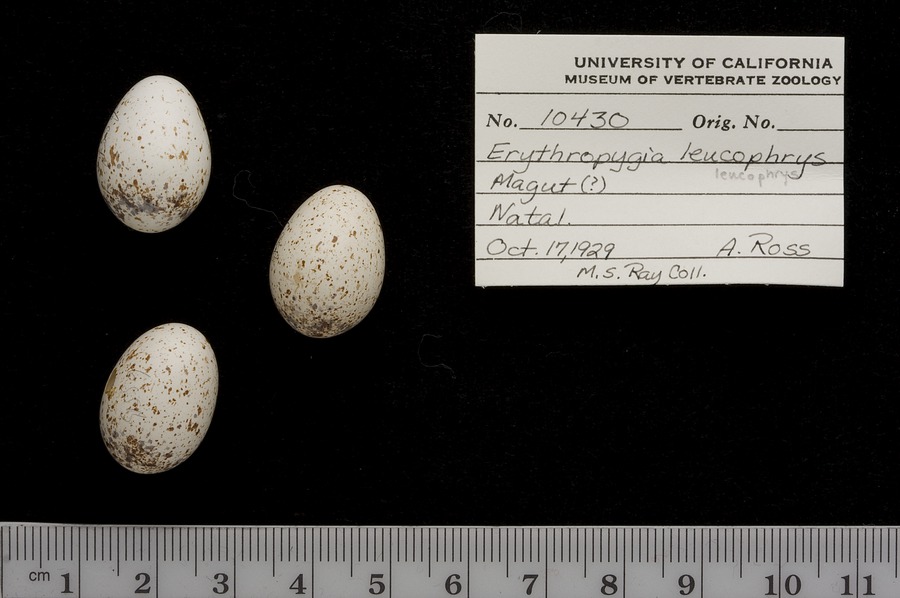 UNIVERSITY OF CALIFORNIA
MUSEUM OF VERTEBRATE ZOOLOGY
No. 10430 Orig. No.
Erythropygia leucophrys
leucophrys
Magut (?)
Natal.
Oct. 17, 1929 A. Ross
M.S. Ray Coll.
cm 1 2 3 4 5 6 7 8 9 10 11